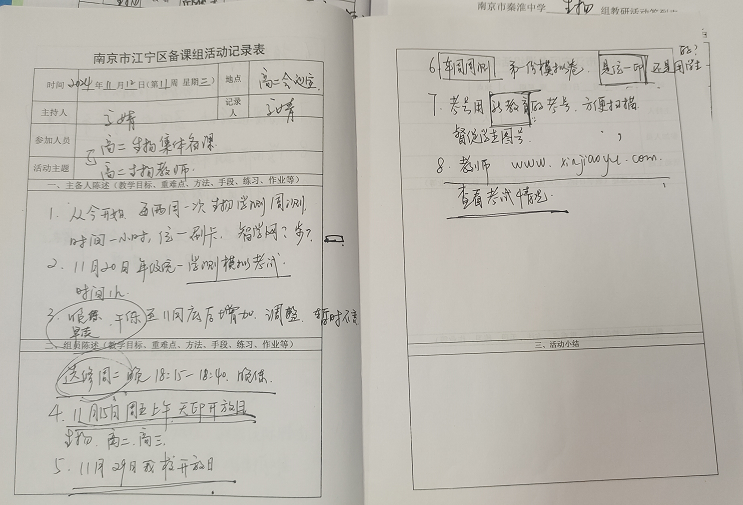 南京市秦淮中学 生物 组教研活动签到表
南京市江宁区备课组活动记录表
时间 2024年11月12日(第11周 星期二) 地点 高二会议室
主持人 王婧 记录人 王婧
参加人员 高二生物集体备课
活动主题 高二生物教师
一、主备人陈述（教学目标、重难点、方法、手段、练习、作业等）
1. 从今开始 每两周一次 生物学测周测,
时间一小时, 统一刷卡. 智学网?
2. 11月20日年级统一学测模拟考试
时间1h.
3. 晚练 午练至11月底后增加. 调整. 暂时不
早读
二、组员陈述（教学目标、重难点、方法、手段、练习、作业等）
选修周二 晚 18:15-18:40. 晚练.
4. 11月15日 周五上午. 天印开放日
生物. 高二. 高三.
5. 11月29日我校开放日
6. 第一份模拟卷. 是统一印 还是用学生的?
7. 考号用新教育的考号. 方便扫描
督促学生图号.
8. 教师 www.xinjiaoyu.com.
查看考试情况.
三、活动小结